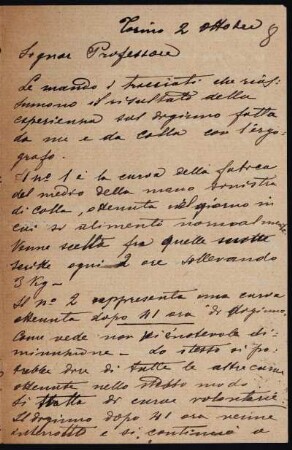 Torino 2 ottobre 8
Signor Professore
Le mando i tracciati che rias-
sumono il risultato della
esperienza sul digiuno fatta
da me e da Colla con l'ergo-
grafo.
Il nº 1 è la curva della fatica
del medio della mano sinistra
di Colla, ottenuta nel giorno in
cui si alimentò normalmente
Venne scelta fra quelle
scritte ogni 2 ore sollevando
3 Kg -
Il nº 2 rappresenta una curva
ottenuta dopo 41 ora di digiuno.
Come vede non vi è notevole di-
minuzione. - Lo stesso si po-
trebbe dire di tutte le altre curve
ottenute nello stesso modo.
Si tratta di curve volontarie.
Il digiuno dopo 41 ora venne
interrotto e si continuò a